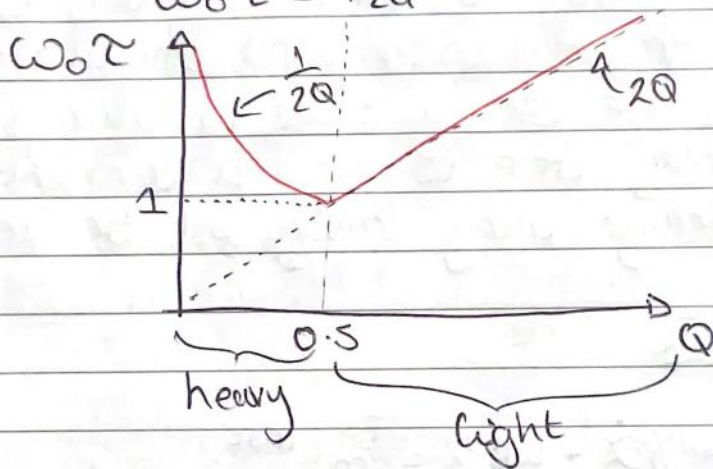 ω₀τ
1/2Q
2Q
1
0.5
Q
heavy
light